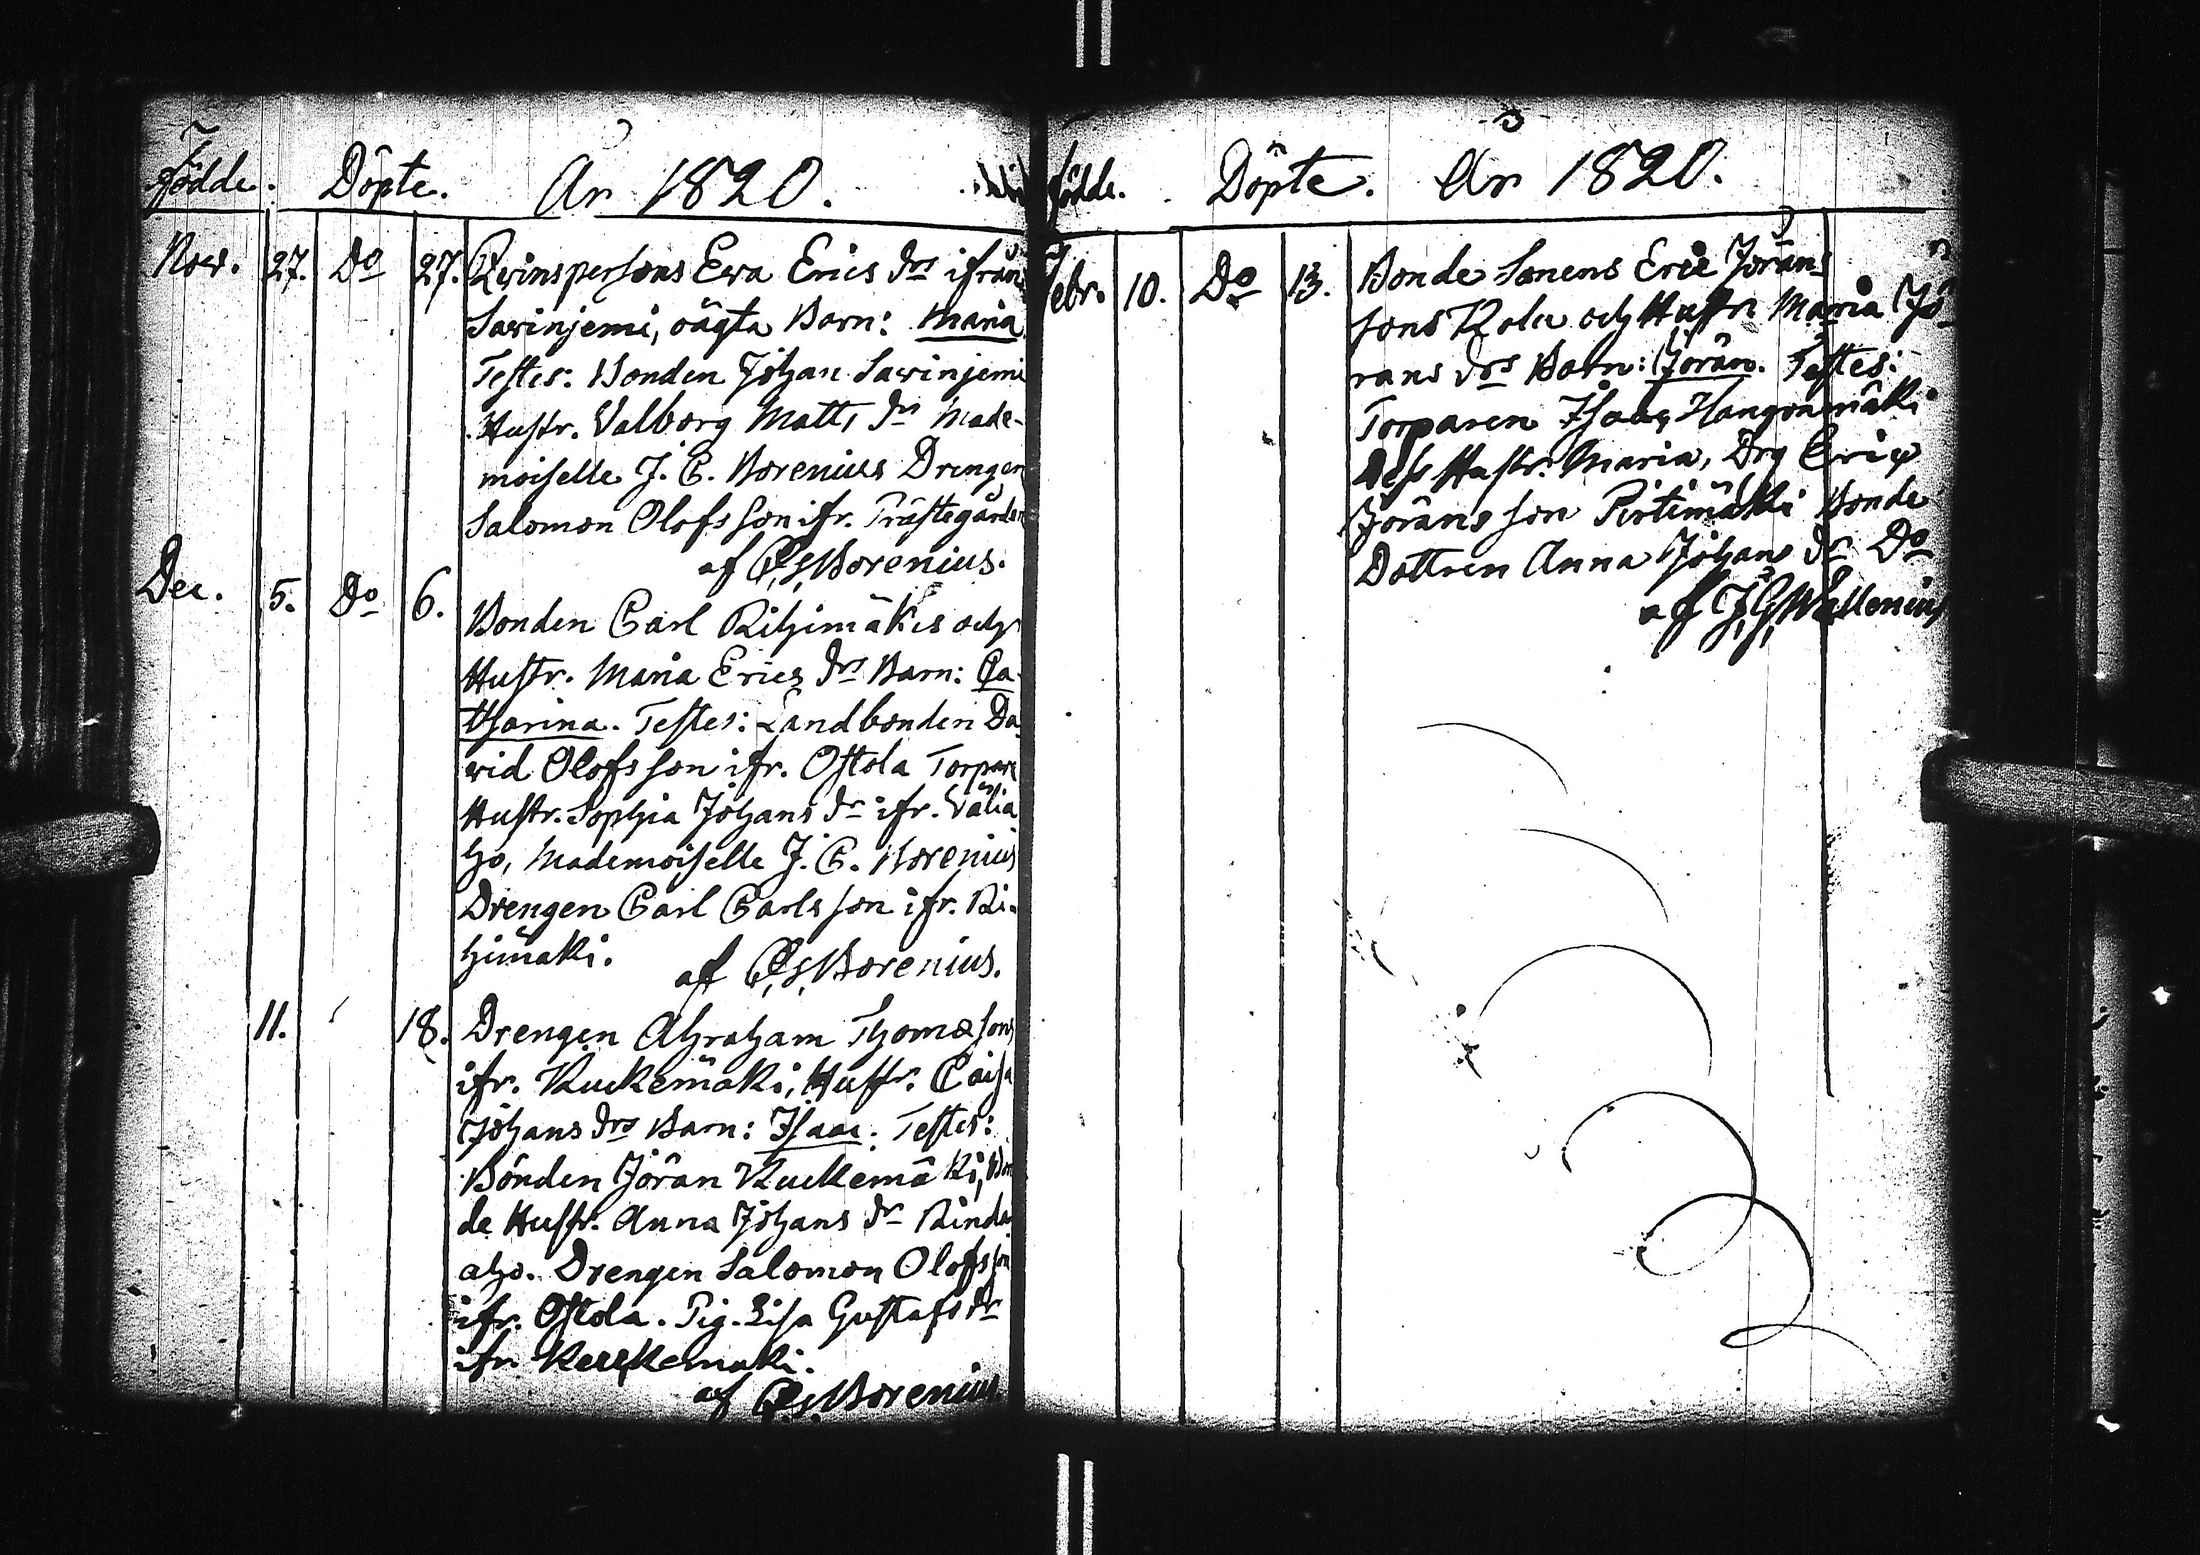 Födde. Döpte. År 1820.
Nov. 27. Do 27. Qvinspersons Eva Erics drs ifrån
Savinjemi, oägta Barn: Maria
Testes: Bonden Johan Savinjemi
Hustr. Valborg Matts dr Made-
moiselle J. C. Borenius Drengen
Salomon Olofsson ifr. Prästegården
af C. G. Borenius.
Dec. 5. Do 6. Bonden Carl Rihimäkis och
Hustr. Maria Erics drs Barn: Ca-
tharina. Testes: Landbonden Da
vid Olofsson ifr. Ostola Torpare
Hustr. Sophia Johans dr ifr. Välia
ho, Mademoiselle J. C. Borenius
Drengen Carl Carlsson ifr. Ri-
himäki.
af C. G. Borenius.
11. 18. Drengen Abraham Thomæsons
ifr. Kuckemäki, Hustr. Caisa
Johans drs Barn: Isaac. Testes:
Bonden Jöran Kuckemäki, Bon
de Hustr. Anna Johans dr Rinda
aho. Drengen Salomon Olofsson
ifr. Ostola. Pig. Lisa Gustafs dr
ifr. Kuckemäki.
af C. G. Borenius
3
Födde. Döpte. År 1820.
Febr. 10. Do 13. Bonde Sonens Eric Jörans
sons Kola och Hustr. Maria Jö-
rans drs Barn: Jöran. Testes:
Torparen Isaac Hangonmäki
dess Hustr. Maria, Drg Eric
Jöransson Pirtimäki Bonde
Dottren Anna Johans dr Do
af J. G. Wallenius